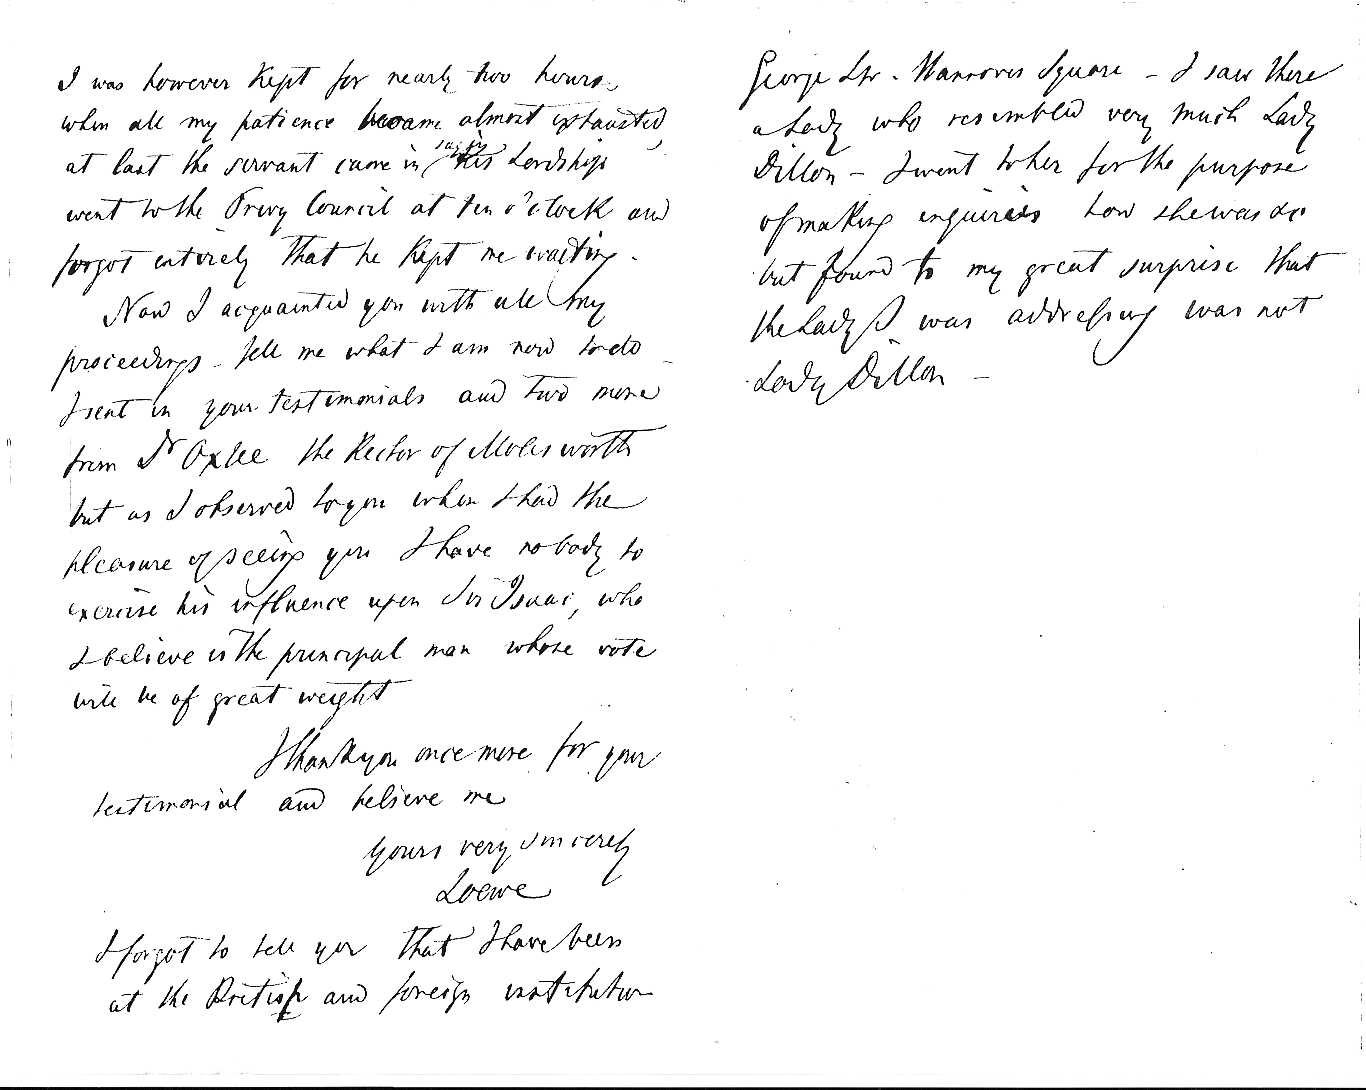 I was however kept for nearly two hours.
when all my patience became almost exhausted,
at last the servant came in saying his Lordship
went to the Privy Council at ten o'clock and
forgot entirely that he kept me waiting.
Now I acquainted you with all my
proceedings - tell me what I am now to do -
I sent in your testimonials and two more
from Dr Oxlee the Rector of Molesworth
but as I observed to you when I had the
pleasure of seeing you I have nobody to
exercise his influence upon Sir Isaac, who
I believe is the principal man whose vote
will be of great weight
I thank you once more for your
testimonial and believe me
yours very sincerely
Loewe
I forgot to tell you that I have been
at the British and foreign institution
George Str. Hannover Square - I saw there
a Lady who resembled very much Lady
Dillon - I went to her for the purpose
of making inquiries how she was do
but found to my great surprise that
the Lady I was addressing was not
Lady Dillon -